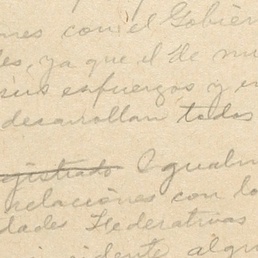 nes con el Gobier
es, ya que el de
sus esfuerzos y
desarrollan todos
Igualm
relaciones con lo
dades Federativas
cidente algu